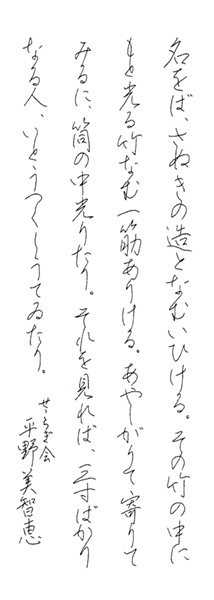 名をば、さぬきの造となむいひける。その竹の中に
もと光る竹なむ一筋ありける。あやしがりて寄りて
みるに、筒の中光りたり。それを見れば、三寸ばかり
なる人、いとうつくしうてゐたり。
せゝらぎ会
平野美智恵